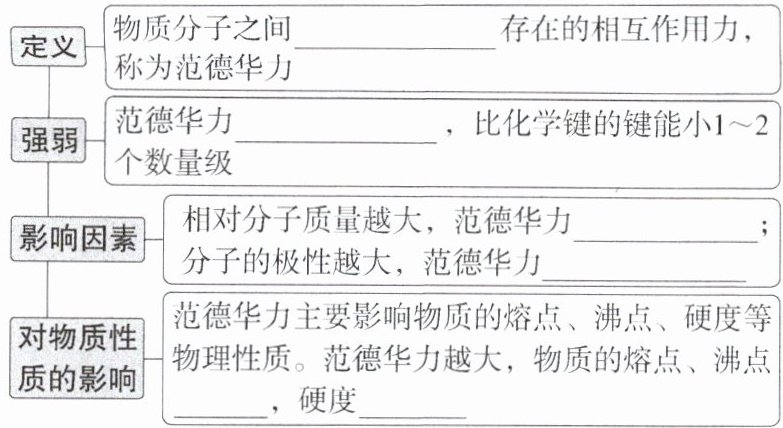 定义
物质分子之间____________存在的相互作用力，
称为范德华力
强弱
范德华力____________，比化学键的键能小1～2
个数量级
影响因素
相对分子质量越大，范德华力____________；
分子的极性越大，范德华力____________
对物质性
质的影响
范德华力主要影响物质的熔点、沸点、硬度等
物理性质。范德华力越大，物质的熔点、沸点
______，硬度______